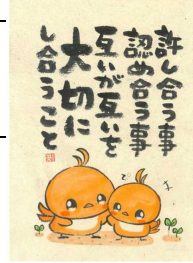 許し合う事
認め合う事
互いが互いを
大切に
し合うこと